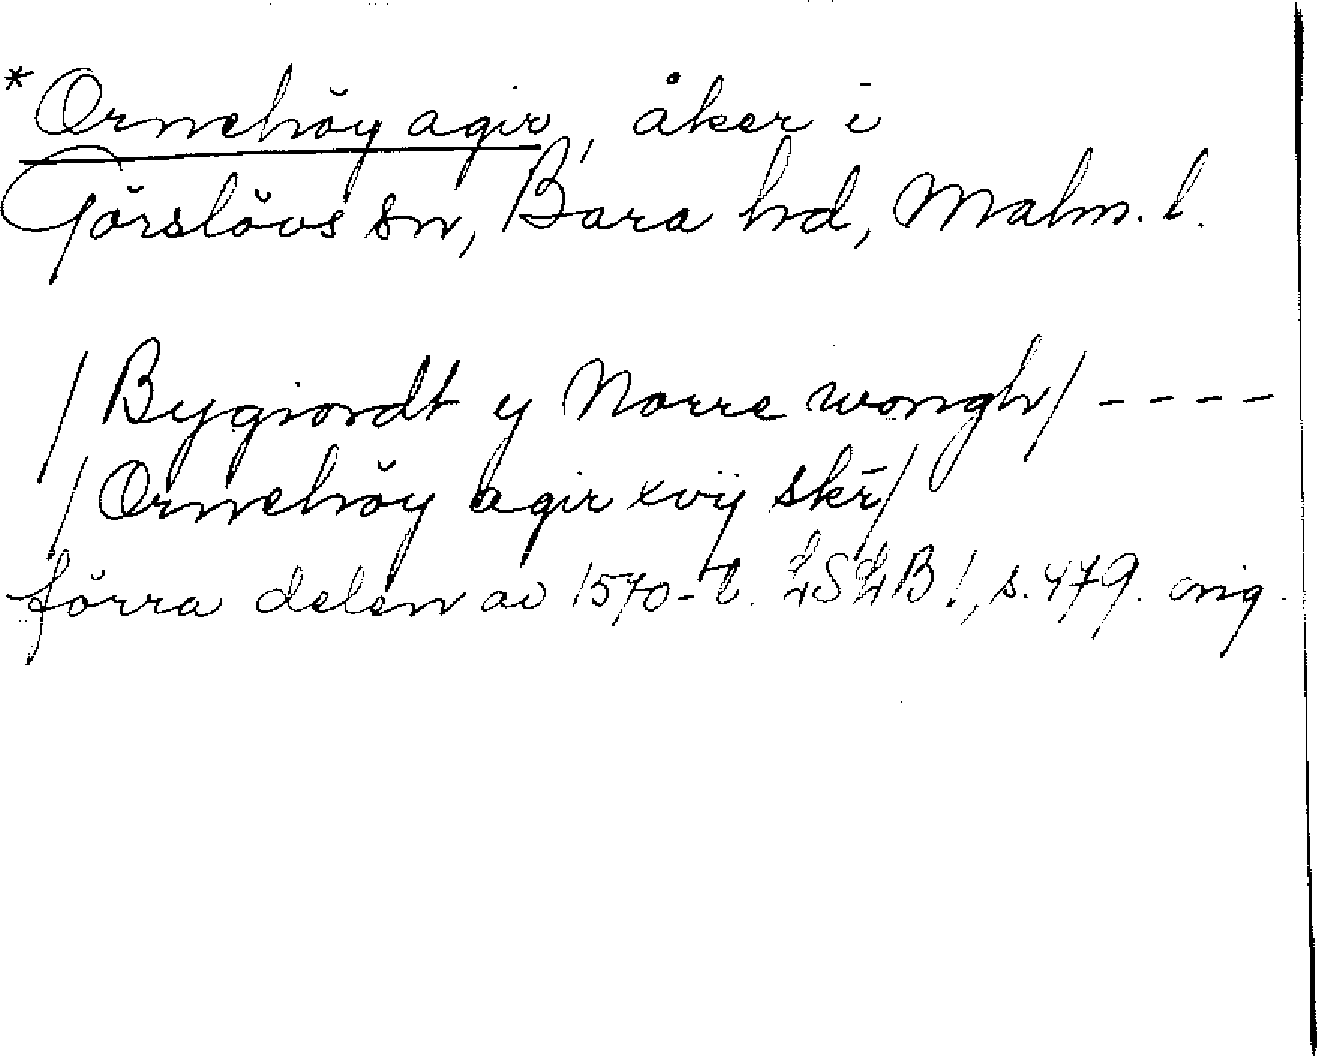 *Ornehöy agir, åker i
Görslövs sn, Bara hd, Malm. l.
/Bygiordt y Norre wongh/ ----
/Ornehöy agir xvij skr̄/
förra delen av 1570-t. LSLB!, s. 479. orig.